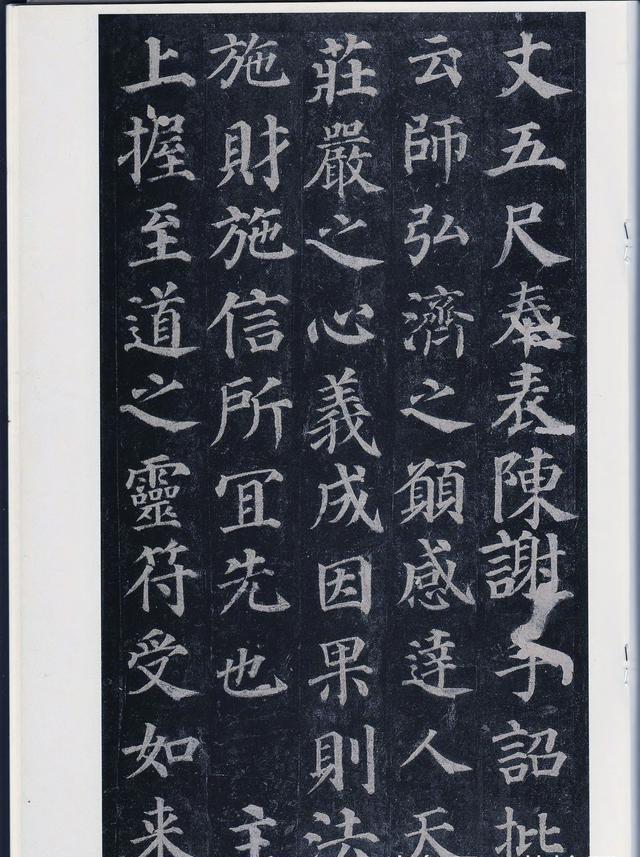 丈五尺奉表陳謝手詔批
云師弘濟之願感達人天
莊嚴之心義成因果則法
施財施信所冝先也 主
上握至道之靈符受如来